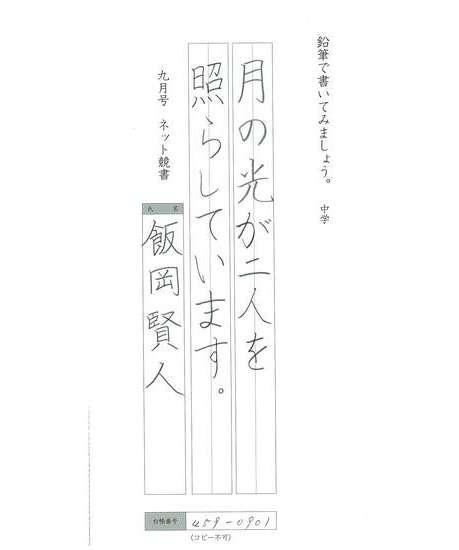 鉛筆で書いてみましょう。 中学
月の光が二人を
照らしています。
九月号 ネット競書
氏名
飯岡賢人
台帳番号 459-0901
(コピー不可)